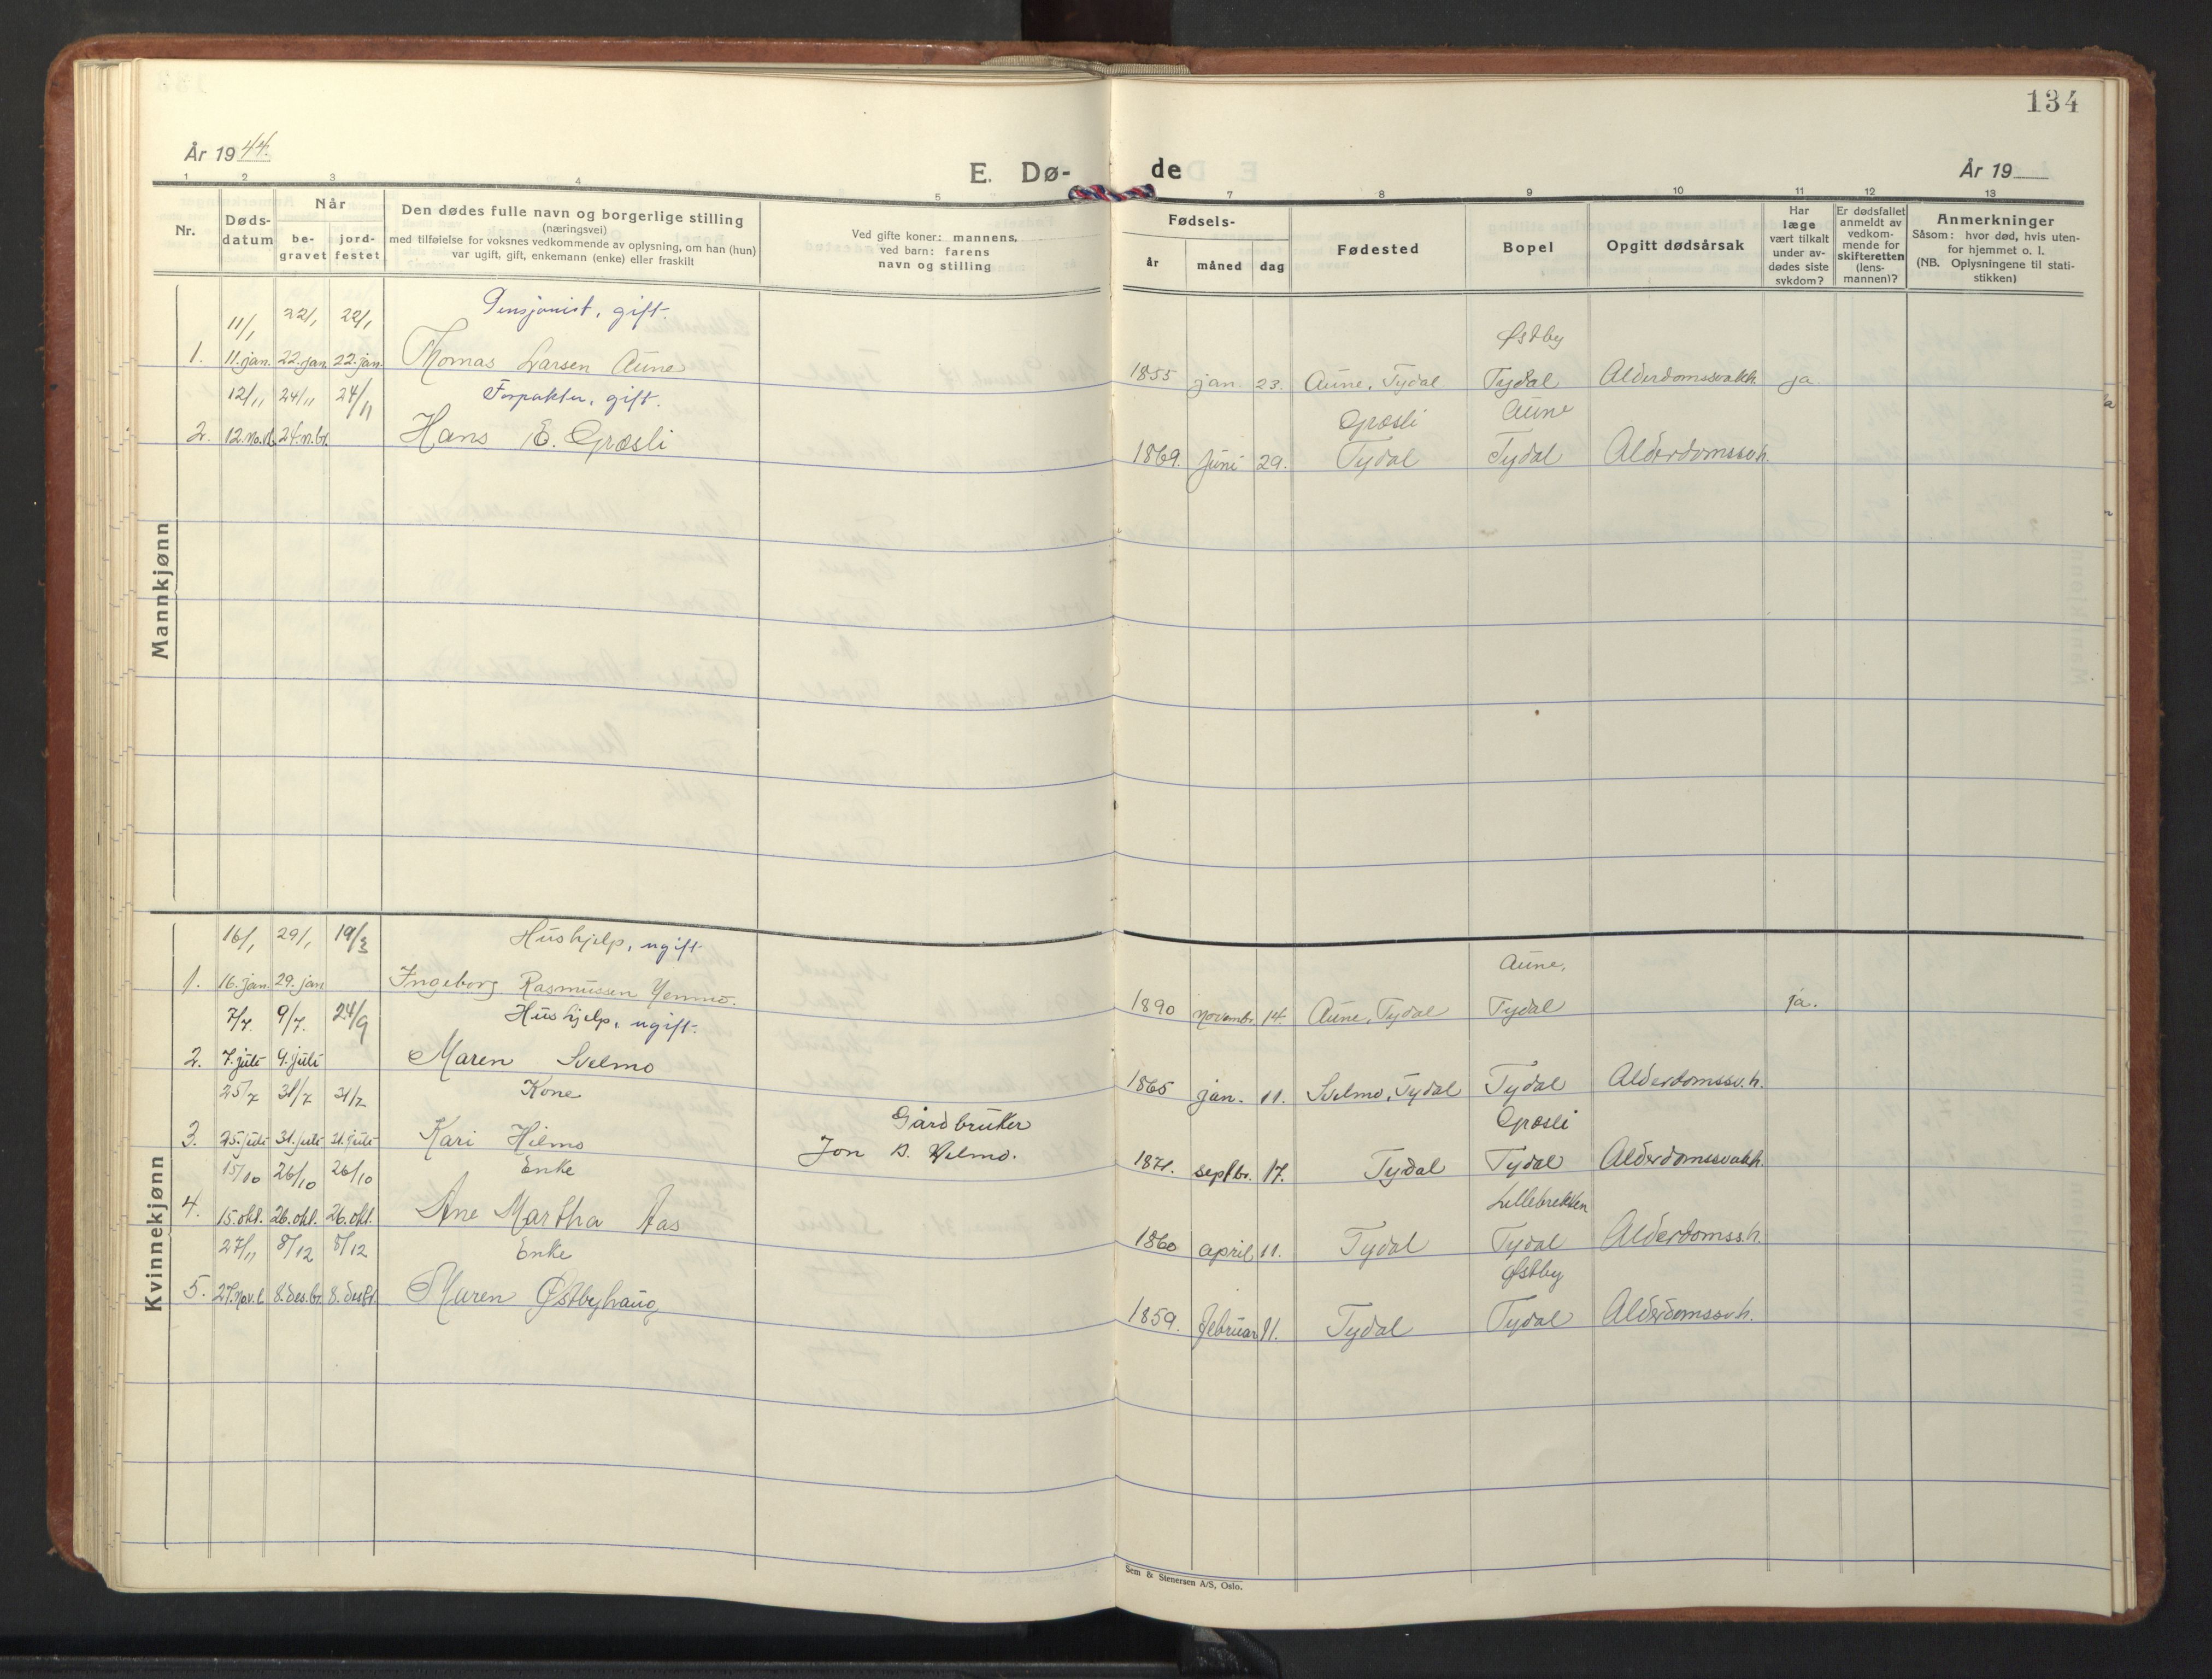 134
År 1944.
E. Dø-
de
År 19
1 2 3 4 5
7 8 9 10 11 12 13
Nr.
Døds-
datum
Når
be-
gravet
jord-
festet
Den dødes fulle navn og borgerlige stilling
(næringsvei)
med tilføielse for voksnes vedkommende av oplysning, om han (hun)
var ugift, gift, enkemann (enke) eller fraskilt
Ved gifte koner: mannens,
ved barn: farens
navn og stilling
Fødsels-
år
måned
dag
Fødested
Bopel
Opgitt dødsårsak
Har
læge
vært tilkalt
under av-
dødes siste
sykdom?
Er dødsfallet
anmeldt av
vedkom-
mende for
skifteretten
(lens-
mannen)?
Anmerkninger
Såsom: hvor død, hvis uten-
for hjemmet o. l.
(NB. Oplysningene til stati-
stikken)
Mannkjønn
11/1 22/1 22/1 Pensjonist, gift. Østby
1. 11. jan. 22. jan. 22. jan. Thomas Larsen Aune 1855 jan. 23. Aune, Tydal Tydal Alderdomssvakh. ja.
12/11 24/11 24/11 Forpakter, gift. Græsli Aune
2. 12. 24. Hans E. Græsli 1869. Juni 29. Tydal Tydal Alderdomssvh.
Kvinnekjønn
16/1 29/1 19/3 Hushjelp, ugift Aune,
1. 16. jan. 29. jan Ingeborg Rasmussen 1890 novembr. 14. Aune, Tydal Tydal ja.
7/7. 9/7. 24/9 Hushjelp, ugift.
2. 7. juli 9. juli Maren Svelmo 1865 jan. 11. Svelmo, Tydal Tydal Alderdomssv.h.
25/7 31/7 31/7 Kone Gårdbruker Græsli
3. 25. juli 31. juli 31. juli Kari Hilmo Jon Hilmo. 1871. septbr. 17. Tydal Tydal Alderdomssvakh.
15/10 26/10 26/10 Enke Lillebrekken
4. 15. okt. 26. okt. 26. okt. Ane Martha Aas 1860 april 11. Tydal Tydal Alderdomss.h.
27/11 8/12 8/12 Enke Østby
5. 27. 8. des.br. 8. Maren Østbyhaug 1859. Februar 11. Tydal Tydal Alderdomssvh.
Sem & Stenersen A/S, Oslo.